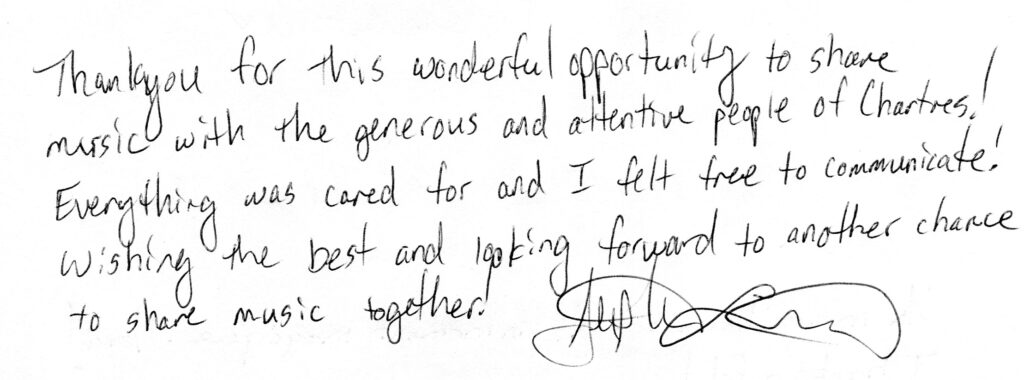 Thankyou for this wonderful opportunity to share
music with the generous and attentive people of Chartres!
Everything was cared for and I felt free to communicate!
Wishing the best and looking forward to another chance
to share music together!